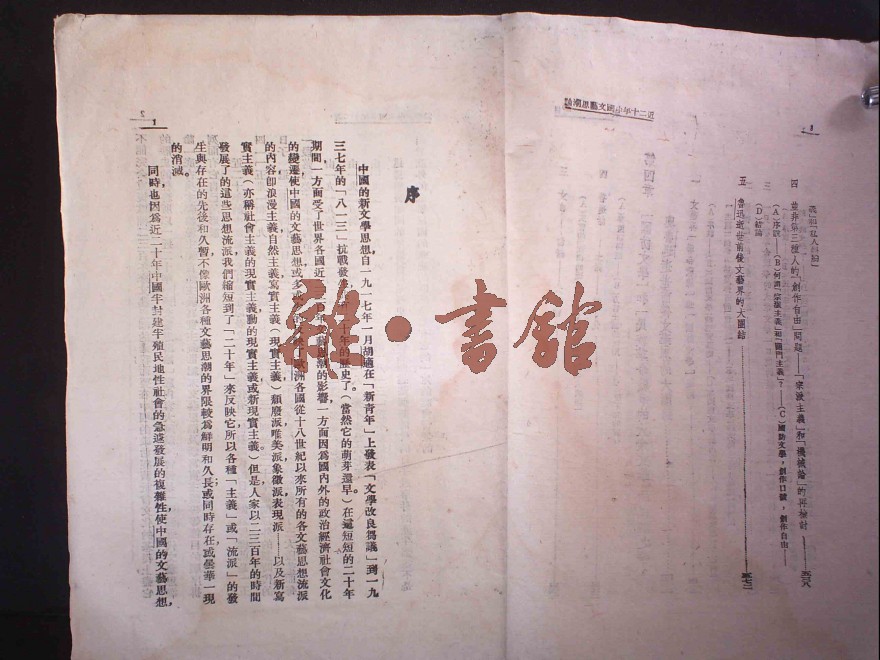 義」和「私人辯論」
四　並非第三種人的「創作自由」問題——「宗派主義」和「機械論」的再檢討……五六八
（A）序說——（B）何謂「宗派主義」和「關門主義」？——（C）國防文學，創作口號，創作自由——
（D）結論
五　魯迅逝世前後文藝界的大團結……五七二
近二十年中國文藝思潮論
序
中國的新文學思想，自一九一七年一月胡適在「新青年」上發表「文學改良芻議」到一九
三七年的「八一三」抗戰發生，十年的歷史了。（當然它的萌芽還早）在這短短的二十年
期間一方面受了世界各國近文藝思潮的影響一方面因為國內外的政治經濟社會文化
的變遷使中國的文藝思想或多或映了歐洲各國從十八世紀以來所有的各文藝思想流派
的內容即浪漫主義自然主義寫實主義（現實主義）頹廢派唯美派象徵派表現派……以及新寫
實主義（亦稱社會主義的現實主義動的現實主義或新現實主義）。但是人家以二三百年的時間
發展了的這些思想流派我們縮短到了「二十年」來反映它所以各種「主義」或「流派」的發
生與存在的先後和久暫不像歐洲各種文藝思潮的界限較為鮮明和久長；或同時存在，或曇華一現
的消滅。
同時也因為近二十年中國半封建半殖民地性社會的急遽發展的複雜性，使中國的文藝思想，
1
雅·書館